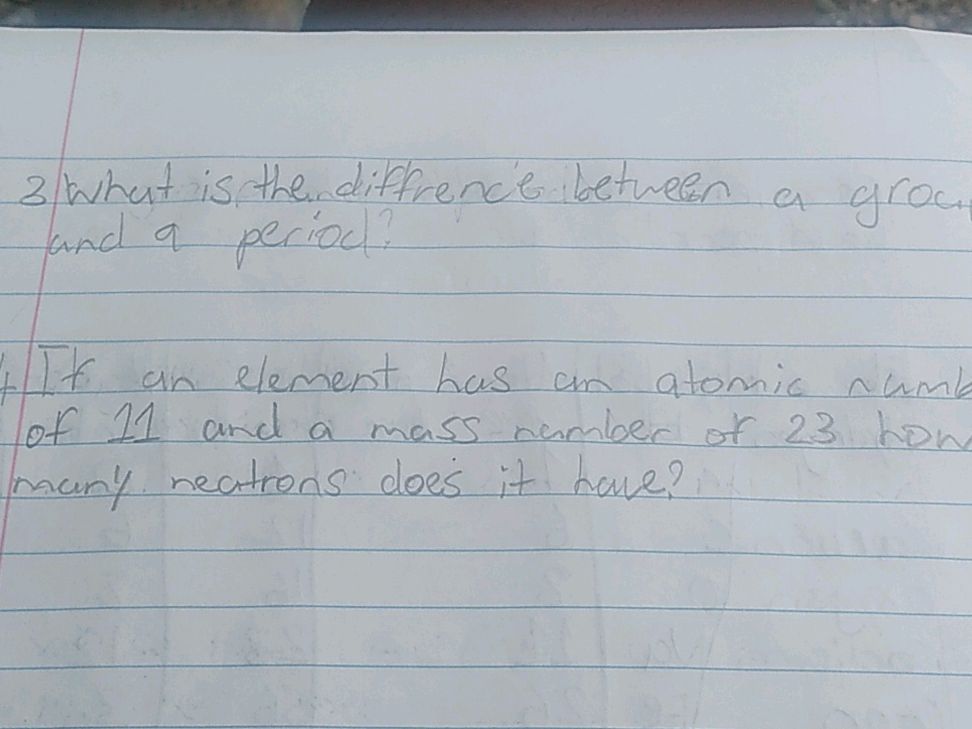 3 What is the diffrence between a grou
and a period?
4 If an element has an atomic numb
of 11 and a mass number of 23 how
many neutrons does it have?